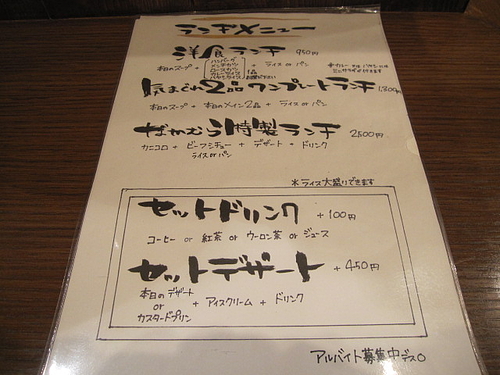 ランチメニュー
洋食ランチ 950円
本日のスープ + ハンバーグ メンチカツ ロースカツ カレーライス ハヤシライス 1品 お選び下さい + ライス or パン
気まぐれ2品ワンプレートランチ
本日のスープ + 本日のメイン2品 + ライス or パン
なかむら特製ランチ 2500円
カニコロ + ビーフシチュー + デザート + ドリンク
ライス or パン
*ライス大盛りできます
セットドリンク +100円
コーヒー or 紅茶 or ウーロン茶 or ジュース
セットデザート +450円
本日のデザート
or + アイスクリーム + ドリンク
カスタードプリン
アルバイト募集中デス○